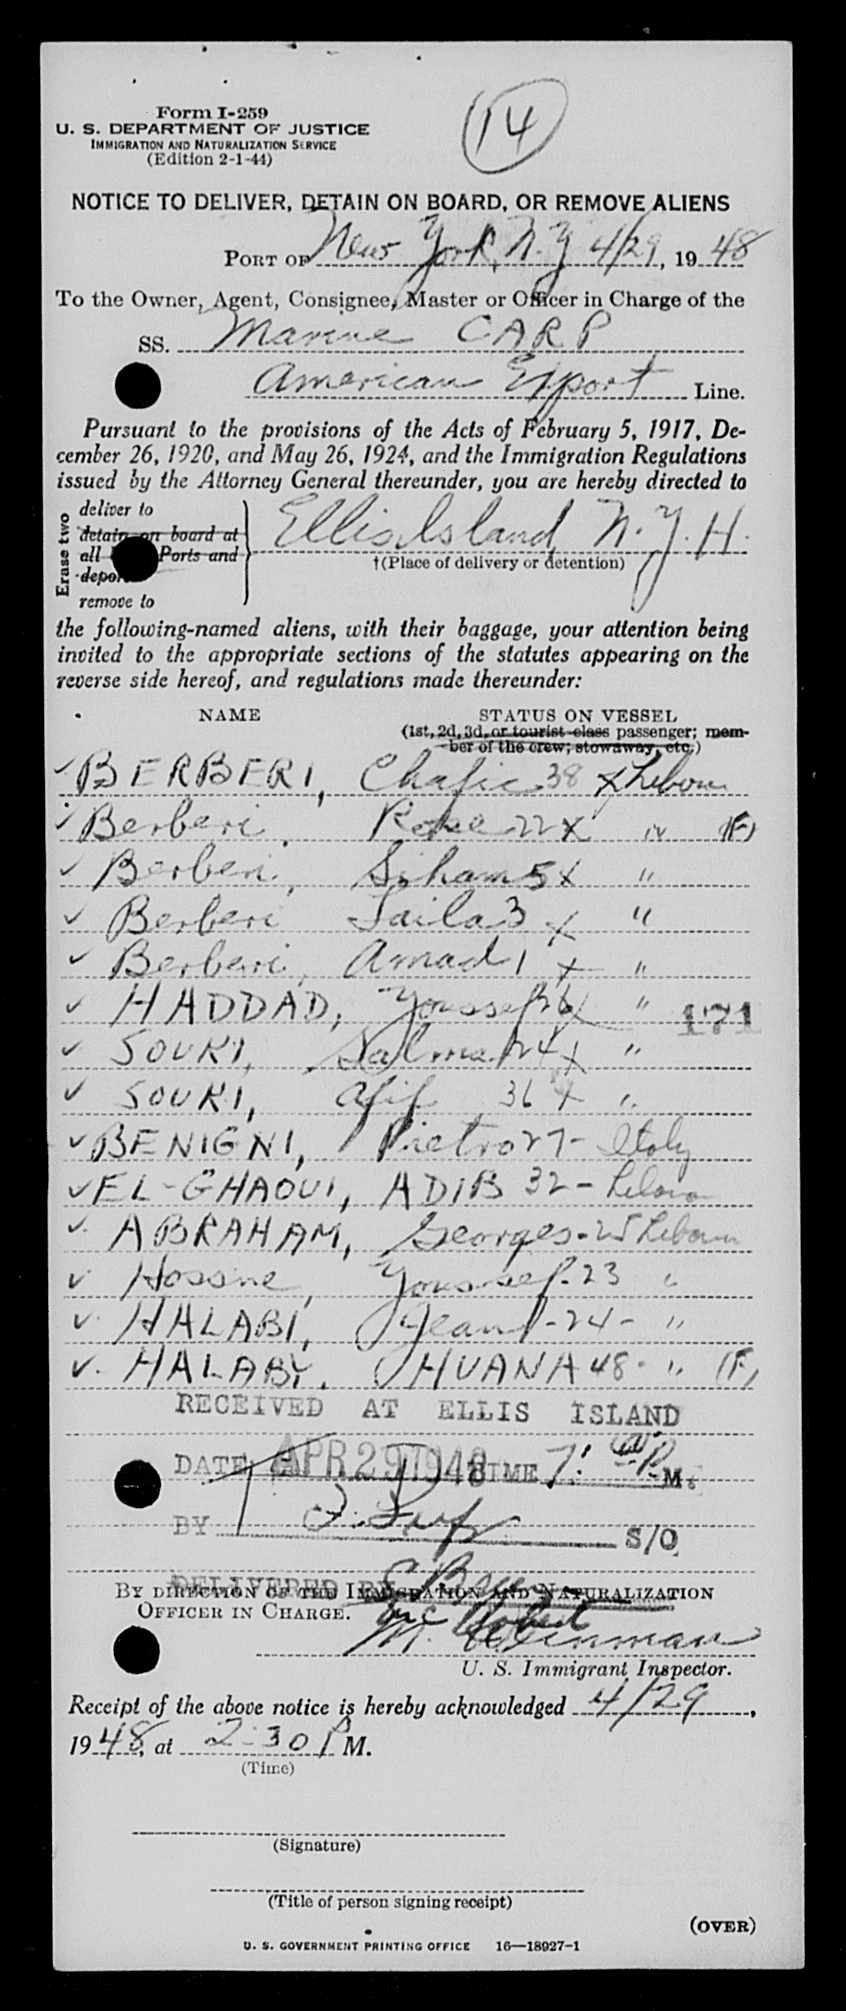 Form I-259
14
U. S. DEPARTMENT OF JUSTICE
IMMIGRATION AND NATURALIZATION SERVICE
(Edition 2-1-44)
NOTICE TO DELIVER, DETAIN ON BOARD, OR REMOVE ALIENS
PORT OF New York, N.Y 4/29, 1948
To the Owner, Agent, Consignee, Master or Officer in Charge of the
SS. Marine CARP
American Export Line.
Pursuant to the provisions of the Acts of February 5, 1917, De-
cember 26, 1920, and May 26, 1924, and the Immigration Regulations
issued by the Attorney General thereunder, you are hereby directed to
Erase two
deliver to
detain on board at
all Ports and
depor
remove to
Ellis Island, N.Y.H.
†(Place of delivery or detention)
the following-named aliens, with their baggage, your attention being
invited to the appropriate sections of the statutes appearing on the
reverse side hereof, and regulations made thereunder:
NAME STATUS ON VESSEL
(1st, 2d, 3d, or tourist class passenger; mem-
ber of the crew; stowaway, etc.)
✓ BERBERI, Chafic 38 x Lebon
✓ Berberi, Rose 22 x " (F)
✓ Berberi, Siham 5 x "
✓ Berberi Laila 3 x "
✓ Berberi, Amad 1 x "
✓ HADDAD, Youssef 26 x " 171
✓ SOUKI, Salma 24 x "
✓ SOUKI, Afif 36 x "
✓ BENIGNI, Pietro 27 - Italy
✓ EL-GHAOUI, ADIB 32 - Lebon
✓ ABRAHAM, Georges - 25 Lebon
✓ Hossne, Youssef - 23 "
✓ HALABI, Jean - 24 - "
✓ HALABY, HUANA 48 - " (F)
RECEIVED AT ELLIS ISLAND
DATE APR 29 1948 TIME 7: P M.
BY S/O
DELIVERED BY
BY DIRECTION OF THE IMMIGRATION AND NATURALIZATION
OFFICER IN CHARGE.
M. Weinman
U. S. Immigrant Inspector.
Receipt of the above notice is hereby acknowledged 4/29,
1948, at 2:30 P M.
(Time)
(Signature)
(Title of person signing receipt)
(OVER)
U. S. GOVERNMENT PRINTING OFFICE 16—18927-1